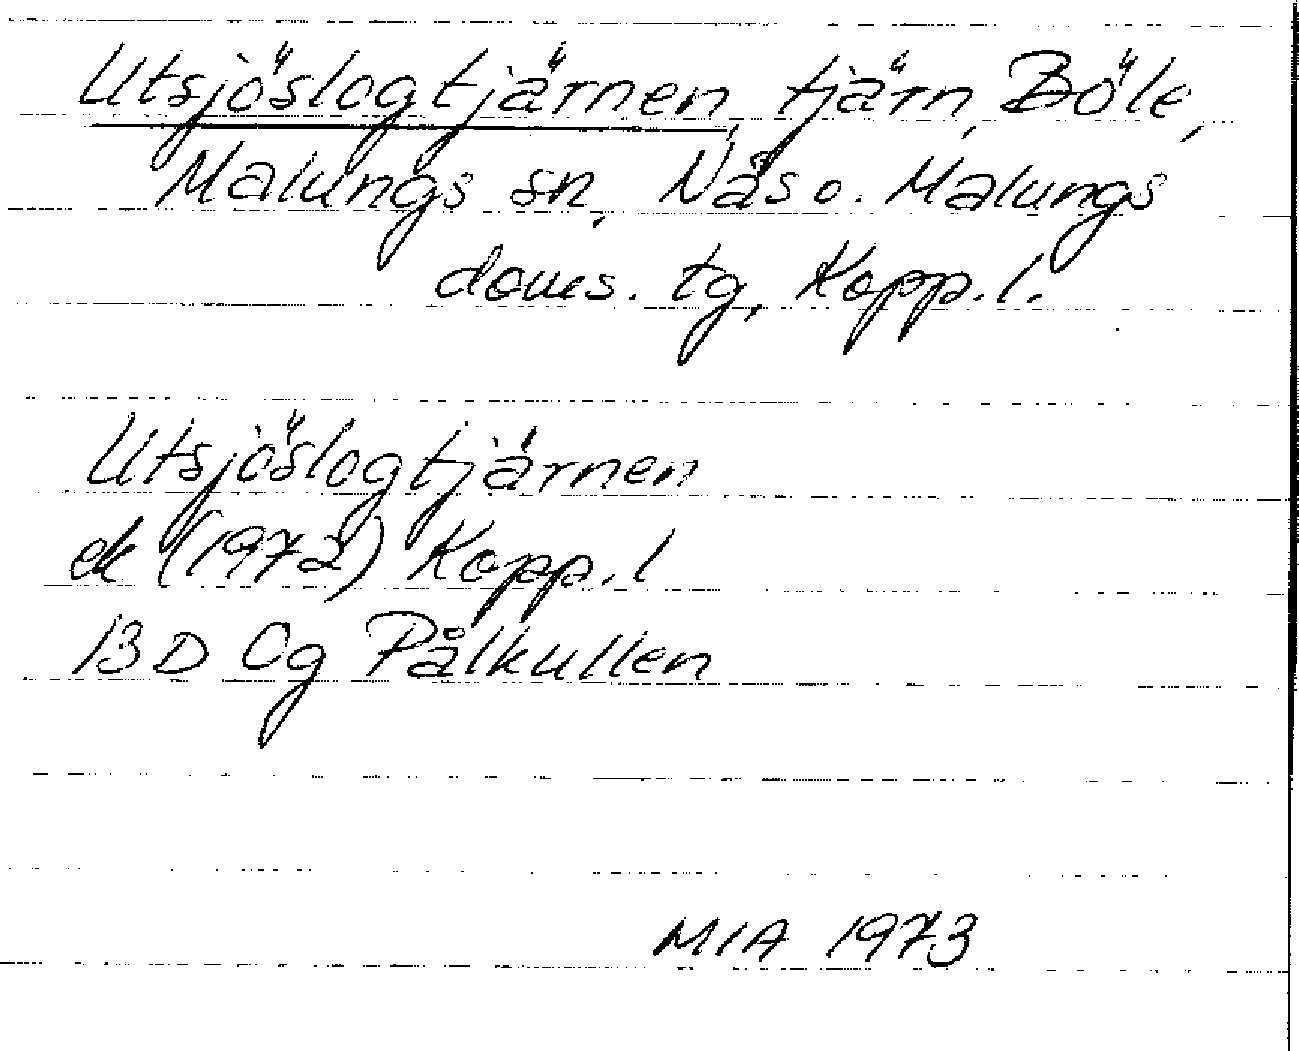 Utsjöslogtjärnen, tjärn, Böle,
Malungs sn, Nås o. Malungs
doms. tg, Kopp. l.
Utsjöslogtjärnen
ek (1972) Kopp. l
13 D 0g Pålkullen
MIA 1973